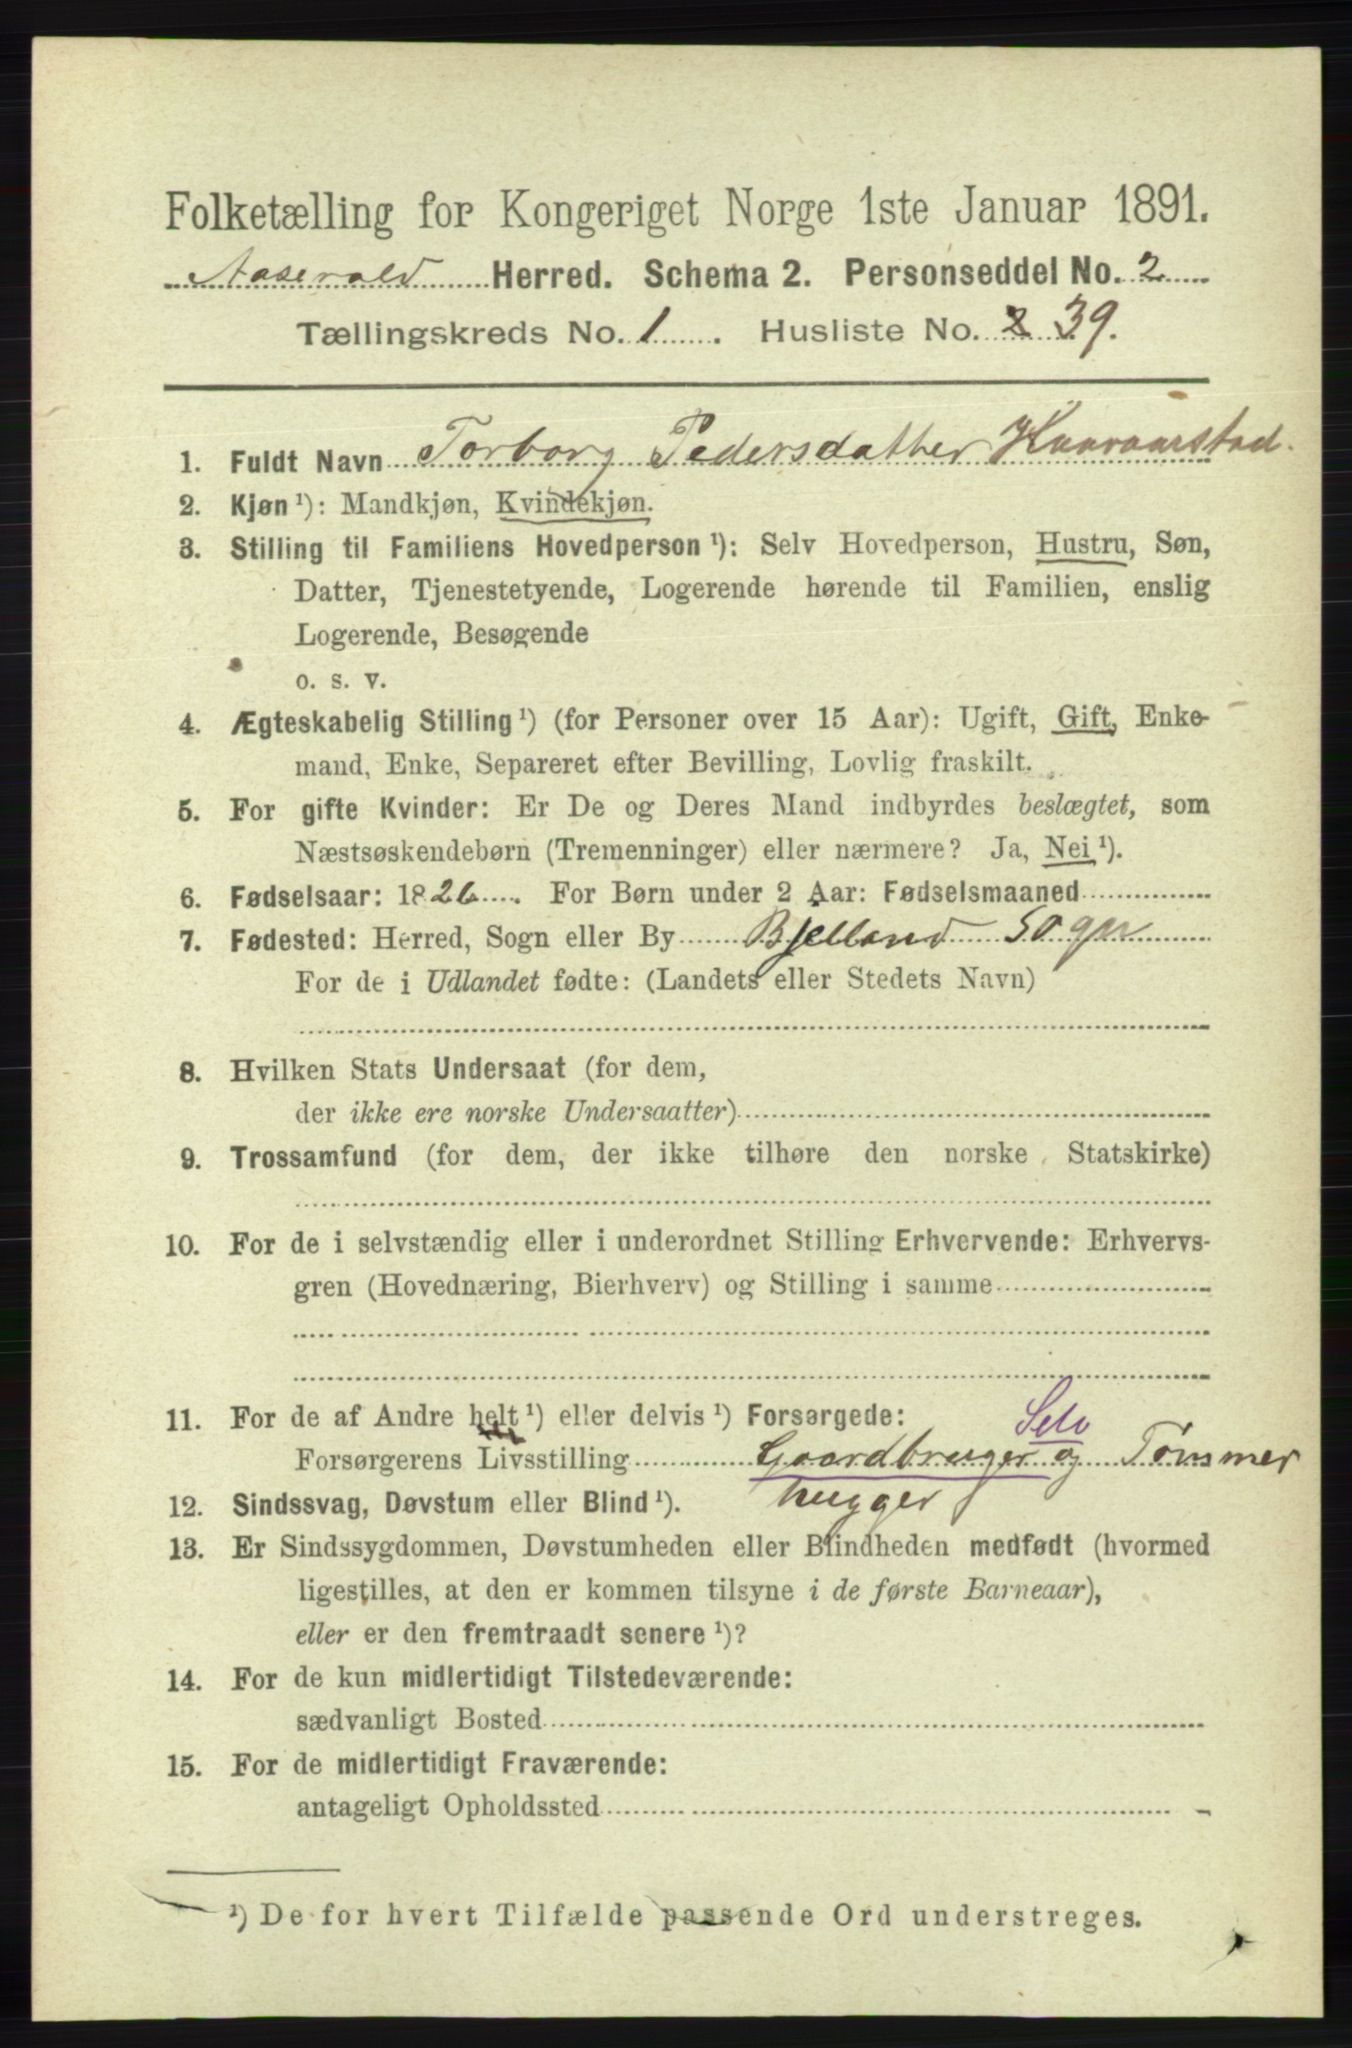 Folketælling for Kongeriget Norge 1ste Januar 1891.
Aaserald Herred. Schema 2. Personseddel No. 2
Tællingskreds No. 1. Husliste No. 2 39.
1. Fuldt Navn Torborg Pedersdatter
2. Kjøn ¹): Mandkjøn, Kvindekjøn.
3. Stilling til Familiens Hovedperson ¹): Selv Hovedperson, Hustru, Søn,
Datter, Tjenestetyende, Logerende hørende til Familien, enslig
Logerende, Besøgende
o. s. v.
4. Ægteskabelig Stilling ¹) (for Personer over 15 Aar): Ugift, Gift, Enke-
mand, Enke, Separeret efter Bevilling, Lovlig fraskilt.
5. For gifte Kvinder: Er De og Deres Mand indbyrdes beslægtet, som
Næstsøskendebørn (Tremenninger) eller nærmere? Ja, Nei ¹).
6. Fødselsaar: 1826. For Børn under 2 Aar: Fødselsmaaned
7. Fødested: Herred, Sogn eller By Bjelland Sogn
For de i Udlandet fødte: (Landets eller Stedets Navn)
8. Hvilken Stats Undersaat (for dem,
der ikke ere norske Undersaatter)
9. Trossamfund (for dem, der ikke tilhøre den norske Statskirke)
10. For de i selvstændig eller i underordnet Stilling Erhvervende: Erhvervs-
gren (Hovednæring, Bierhverv) og Stilling i samme
11. For de af Andre helt ¹) eller delvis ¹) Forsørgede: Selv
Forsørgerens Livsstilling Gaardbruger og Tømmer
12. Sindssvag, Døvstum eller Blind ¹). hugger
13. Er Sindssygdommen, Døvstumheden eller Blindheden medfødt (hvormed
ligestilles, at den er kommen tilsyne i de første Barneaar),
eller er den fremtraadt senere ¹)?
14. For de kun midlertidigt Tilstedeværende:
sædvanligt Bosted
15. For de midlertidigt Fraværende:
antageligt Opholdssted
¹) De for hvert Tilfælde passende Ord understreges.